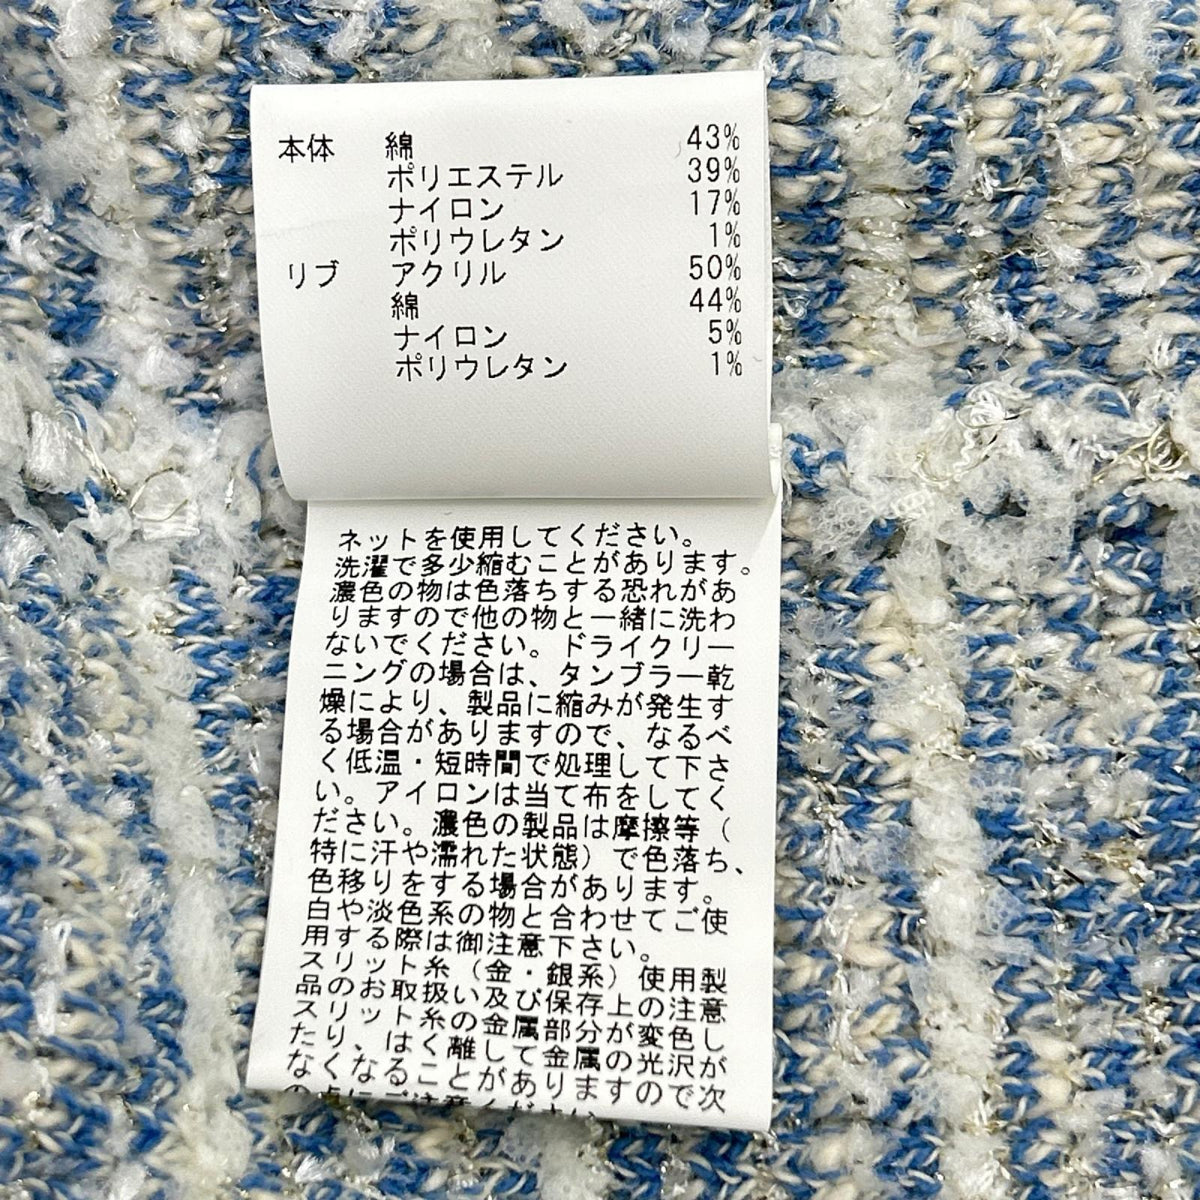 本体 綿 43%
ポリエステル 39%
ナイロン 17%
ポリウレタン 1%
リブ アクリル 50%
綿 44%
ナイロン 5%
ポリウレタン 1%
ネットを使用してください。
洗濯で多少縮むことがあります。
濃色の物は色落ちする恐れがあ
りますので他の物と一緒に洗わ
ないでください。ドライクリー
ニングの場合は、タンブラー乾
燥により、製品に縮みが発生す
る場合がありますので、なるべ
く低温・短時間で処理して下さ
い。アイロンは当て布をしてく
ださい。濃色の製品は摩擦等（
特に汗や濡れた状態）で色落ち、
色移りをする場合があります。
白や淡色系の物と合わせてご使
用する際は御注意下さい。
スリット糸（金・銀系）使用製
品のお取扱い及び保存上の注意
スリット糸の金属部分が変色し
たり、はく離して金属の光沢が
なくなることがありますので次
の点にご注意ください。